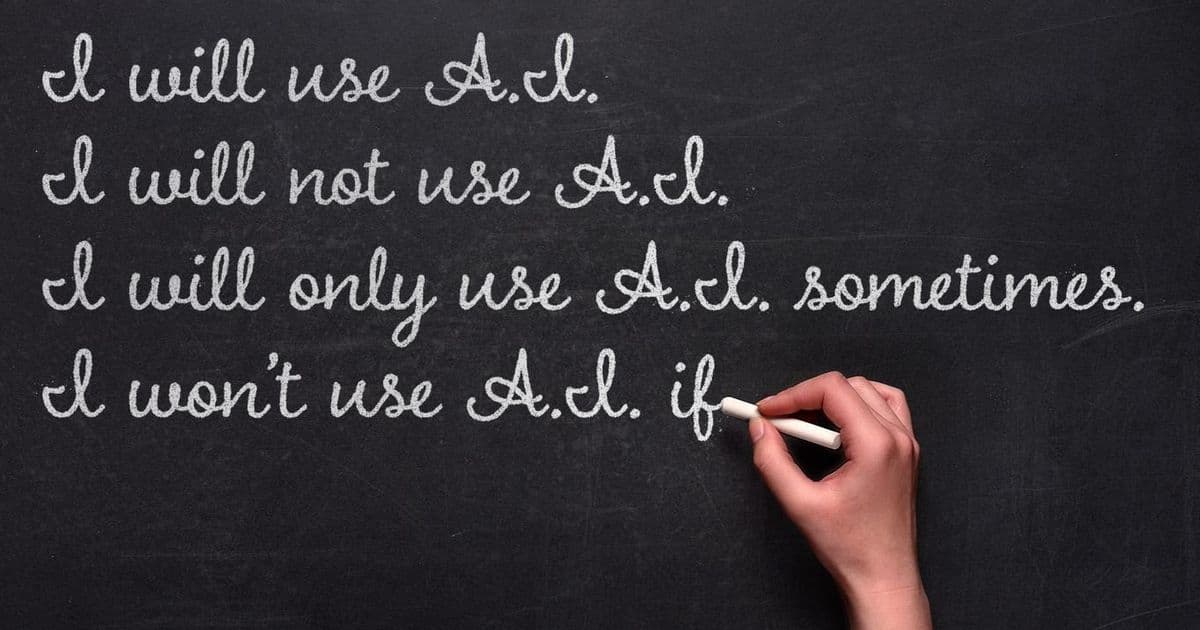 I will use A.I.
I will not use A.I.
I will only use A.I. sometimes.
I won't use A.I. if